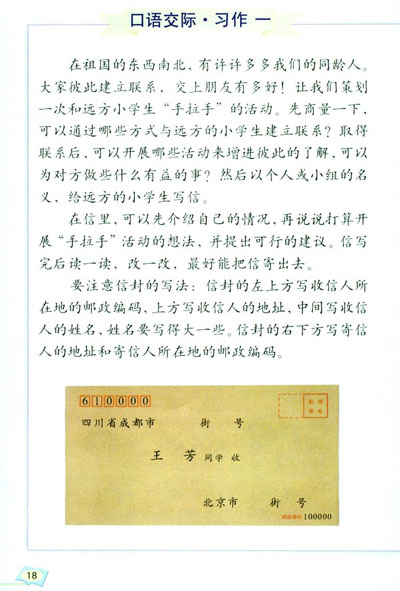 口语交际·习作 一
在祖国的东西南北，有许许多多我们的同龄人。
大家彼此建立联系，交上朋友有多好！让我们策划
一次和远方小学生“手拉手”的活动。先商量一下，
可以通过哪些方式与远方的小学生建立联系？取得
联系后，可以开展哪些活动来增进彼此的了解，可以
为对方做些什么有益的事？然后以个人或小组的名
义，给远方的小学生写信。
在信里，可以先介绍自己的情况，再说说打算开
展“手拉手”活动的想法，并提出可行的建议。信写
完后读一读，改一改，最好能把信寄出去。
要注意信封的写法：信封的左上方写收信人所
在地的邮政编码，上方写收信人的地址，中间写收信
人的姓名，姓名要写得大一些。信封的右下方写寄信
人的地址和寄信人所在地的邮政编码。
610000
四川省成都市 街 号
王 芳 同学 收
北京市 街 号
邮政编码 100000
18